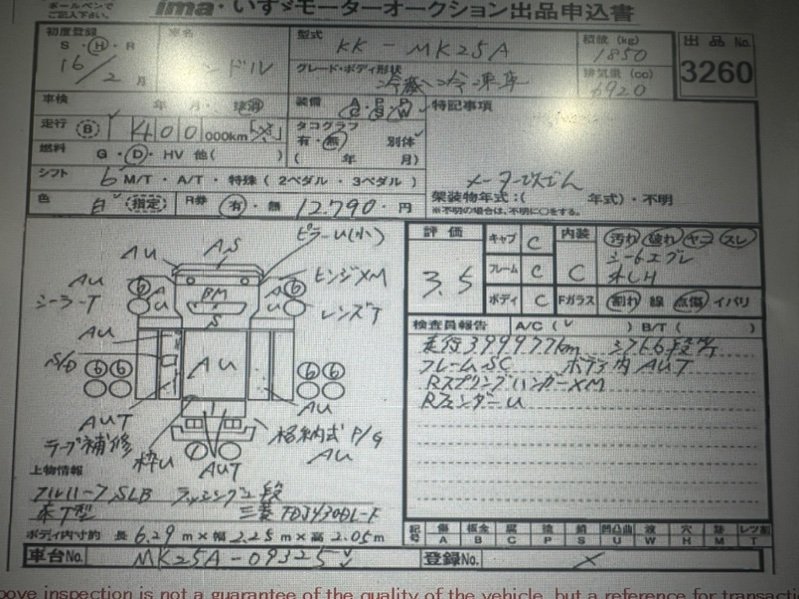 ボールペンで
ご記入下さい。
ima いすゞモーターオークション出品申込書
初度登録 S・H・R 16/2月
車名 ンドル
型式 KK-MK25A
積載 (kg) 1850
グレード・ボディ形状 冷蔵冷凍車
排気量 (cc) 6920
出品No. 3260
車検 年 月・
装備 A/C・P/S・P/W
特記事項
走行 B 400 000km
タコグラフ 有・無 別体
( 年 月)
燃料 G・D・HV 他( )
メーター改ざん
シフト 6 M/T・A/T・特殊(2ペダル・3ペダル)
架装物年式:( 年式)・不明
※不明の場合は、不明に○をする。
色 白 指定 R券 有・無 12.790.円
評価 3.5
キャブ C
フレーム C
ボディ C
内装 C
汚れ 破れ ヤニ スレ
Fガラス 割れ 線 点傷 イバリ
ピラーU(小)
AU
A,S
AU
シーラーT
ヒンジXM
BM
A U
A U
S
レンズT
AU
S/D
AU
AU
AUT
テープ補修
枠U
AUT
格納式P/G
AU
検査員報告 A/C( ) B/T( )
走行399977km シフト6段
フレームSC ボディ内AUT
RスプリングハンガーXM
RフェンダーU
上物情報
フルハーフSLB ラッシング2段
三菱 TDJ430DL-F
ボディ内寸約 長 6.29 m×幅 2.25 m×高 2.05 m
記号 傷A 板金B 腐C 塗P 錆S 凹凸曲U 波W 穴H 跡M レンズ割T
車台No. MK25A-09325
登録No.
ove inspection is not a guarantee of the quality of the vehicle, but a reference for transacti